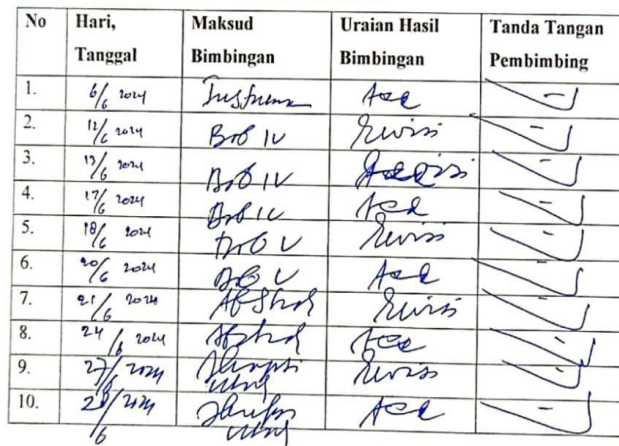 No Hari, Tanggal Maksud Bimbingan Uraian Hasil Bimbingan Tanda Tangan Pembimbing
1. 6/6 2024 Acc
2. 12/6 2024 Bab IV Revisi
3. 13/6 2024 Bab IV
4. 17/6 2024 Bab IV Acc
5. 18/6 2024 Bab V Revisi
6. 20/6 2024 Bab V Acc
7. 21/6 2024 Abstrak Revisi
8. 24/6 2024 Abstrak Acc
9. 27/6 2024 Revisi
10. 2024 Acc